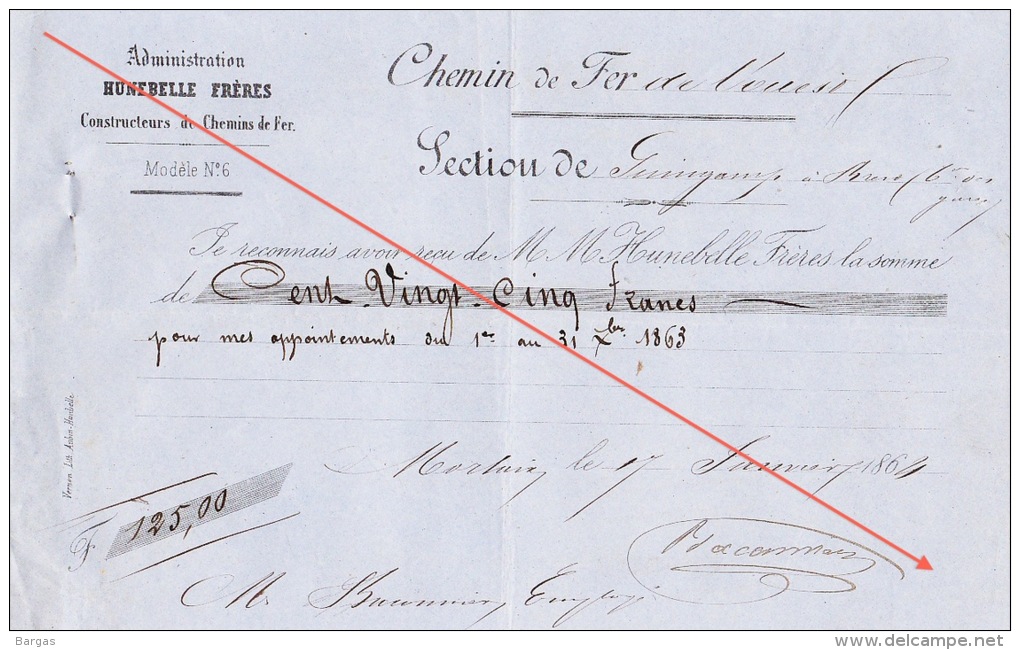 Administration
HUNEBELLE FRÈRES
Constructeurs de Chemins de Fer.
Modèle Nº 6
Chemin de Fer de l'ouest
Section de Guingamp à
Je reconnais avoir reçu de M M Hunebelle Frères la somme
de Cent Vingt-Cinq Francs
pour mes appointements du 1er au 31 Xbre 1863
Morlaix, le 17 Janvier 1864
F 125,00
M. Employé
Vernon Lith
Bargas
delcampe.net